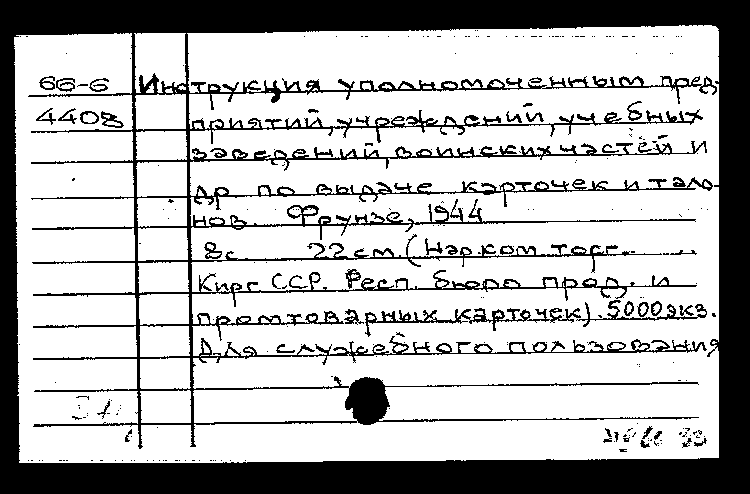 66-6 Инструкция уполномоченным пред-
4408 приятий, учреждений, учебных
заведений, воинских частей и
др по выдаче карточек и тало-
нов. Фрунзе, 1944
8с 22 см. (Нар.ком. торг.
Кирг ССР. Респ. бюро прод. и
промтоварных карточек). 5000 экз.
Для служебного пользования